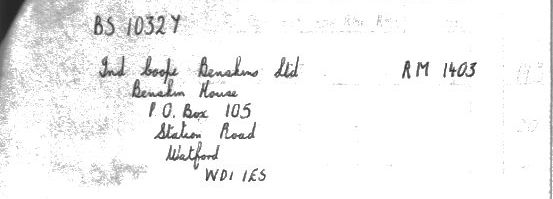 BS 1032Y
Ind Coope Benskins Ltd RM 1403
Benskin House
P.O. Box 105
Station Road
Watford
WD1 1ES